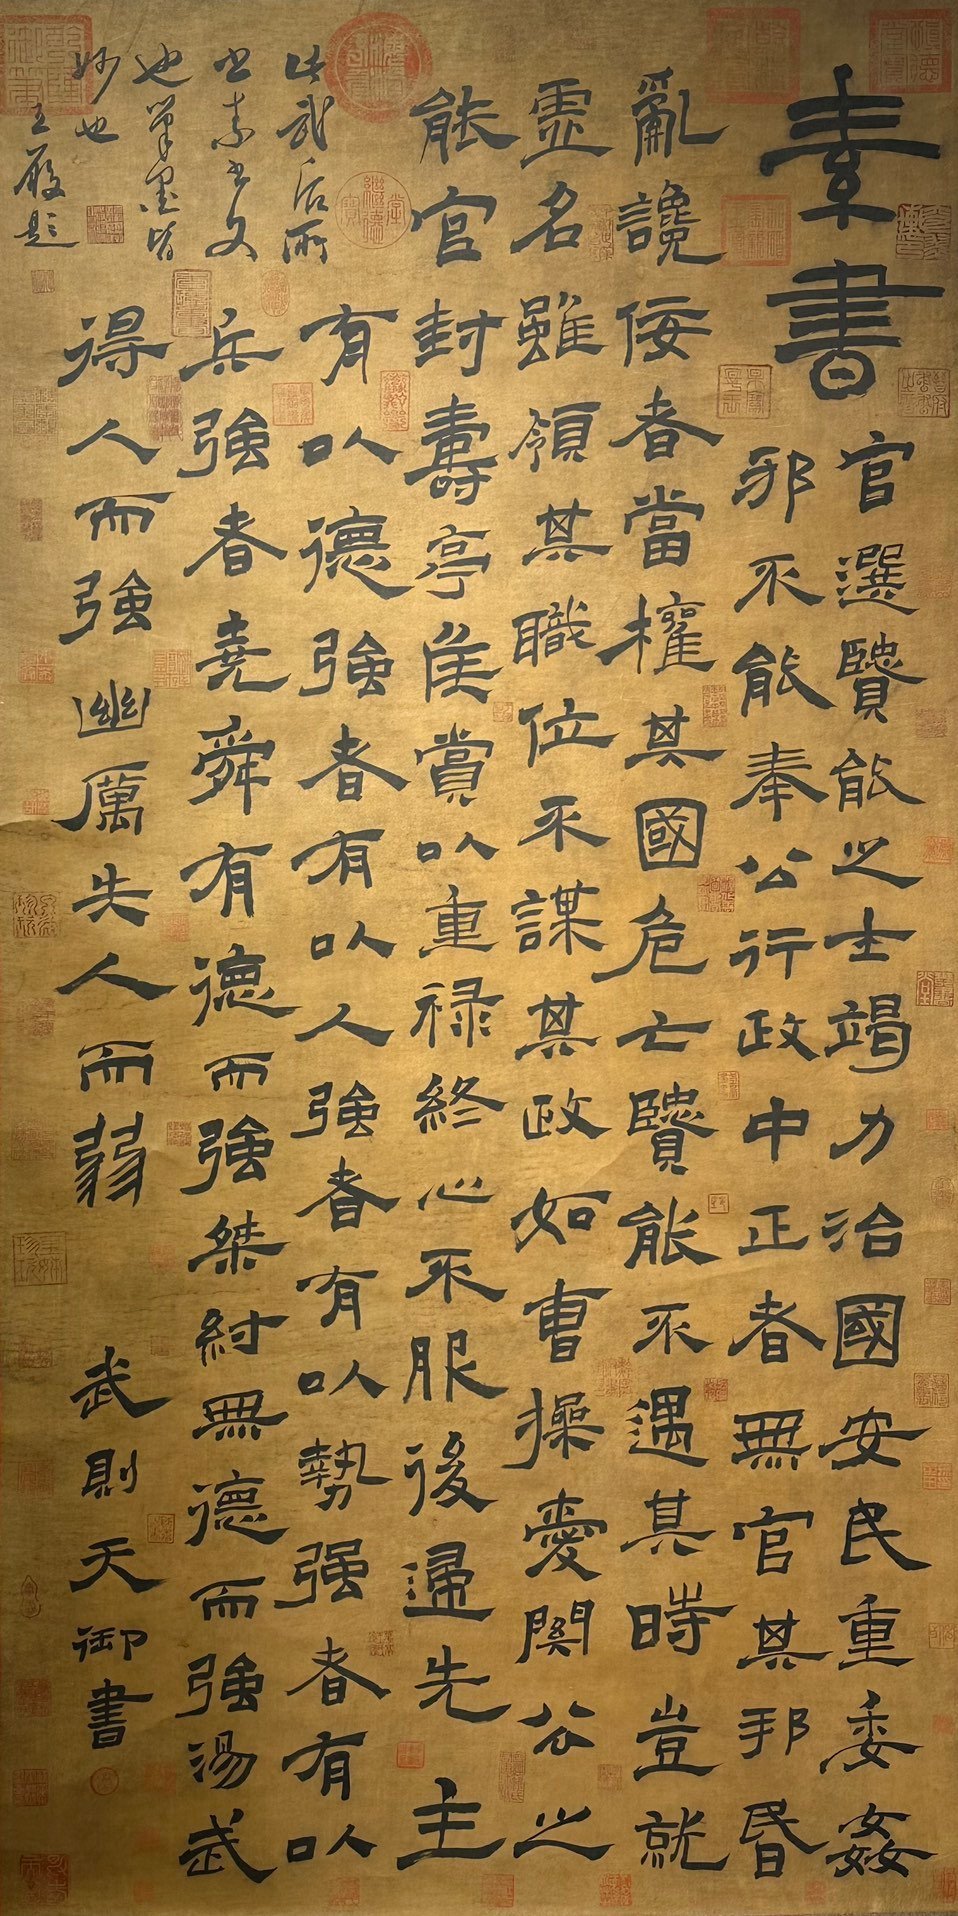 素書
官選賢能之士竭力治國安民重委姦
邪不能奉公行政中正者無官其邦昏
亂讒佞者當權其國危亡賢能不遇其時豈就
虛名雖領其職位不謀其政如曹操愛関公之
能官封壽亭侯賞以重禄終心不服後歸先主
有以德強者有以人強者有以勢强者有以
兵強者堯舜有德而強桀紂無德而強湯武
得人而强幽厲失人而弱
武則天御書
此武后所
書素書文
也筆墨皆
妙也
王殿題